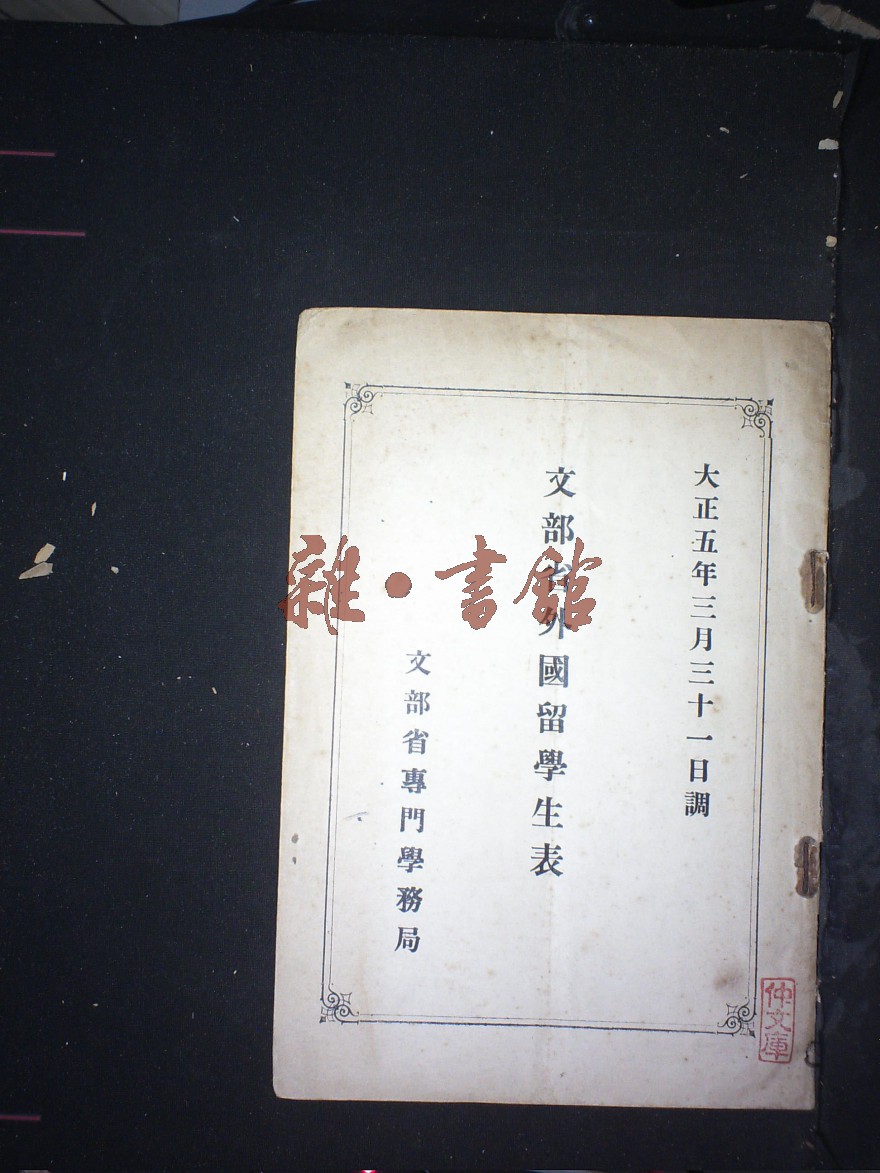 大正五年三月三十一日調
文部省外國留學生表
文部省專門學務局
雜·書館
仲文庫